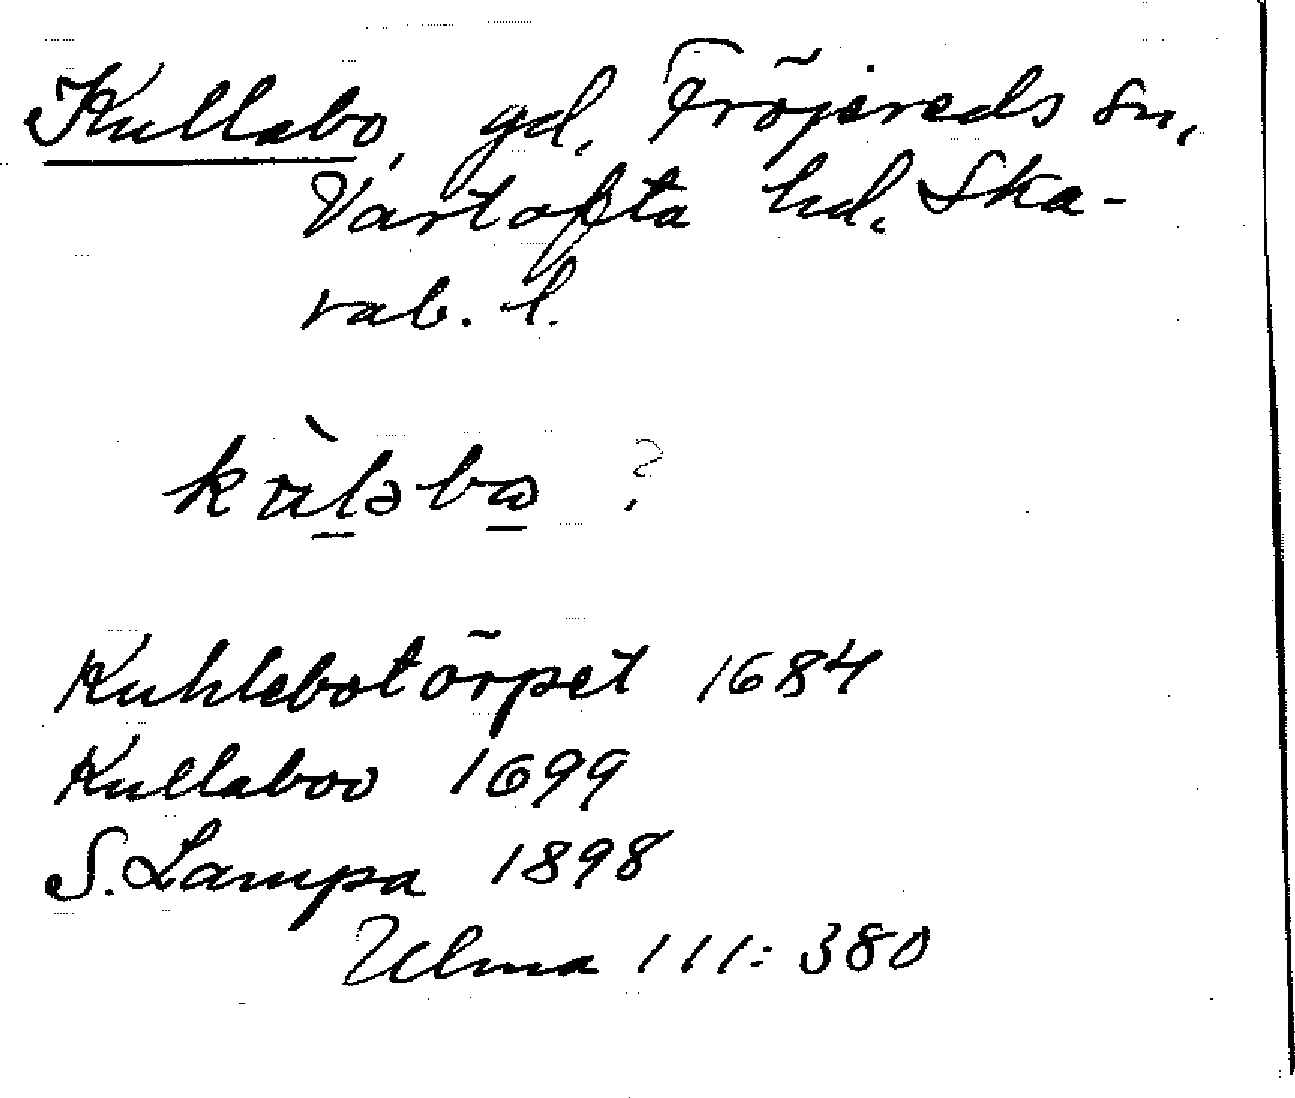 Kullabo, gd, Fröjereds sn,
Vartofta hd, Ska-
rab. l.
kùləbω ?
Kuhlebotörpet 1684
Kullaboo 1699
S. Lampa 1898
Ulma 111:380